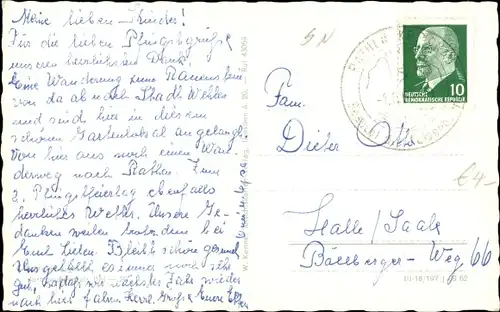 Meine lieben Kinder!
Für die lieben Pfingstgrüße
unseren herzlichsten Dank!
Eine Wanderung zum Rauenstein,
von da ab nach Stadt Wehlen
und sind hier in diesem
schönen Gartenlokal angelangt.
Von hier aus noch einen Wan-
derweg nach Rathen. Zum
2. Pfingstfeiertag ebenfalls
herrliches Wetter. Unsere Ge-
danken weilen trotzdem bei
Euch Lieben. Bleibt schön gesund.
Uns gefällt es immer noch sehr
gut, nächstes Jahr wieder
nach hier fahren. Herzl. Grüße Eure
W. Kenn
III-18/197
62
10
DEUTSCHE
DEMOKRATISCHE REPUBLIK
Fam.
Dieter Otto
€4-
Halle / Saale
Böllberger-Weg 66